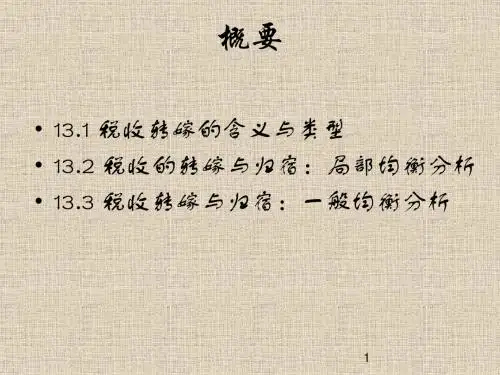 概要
• 13.1 税收转嫁的含义与类型
• 13.2 税收的转嫁与归宿：局部均衡分析
• 13.3 税收转嫁与归宿：一般均衡分析
1